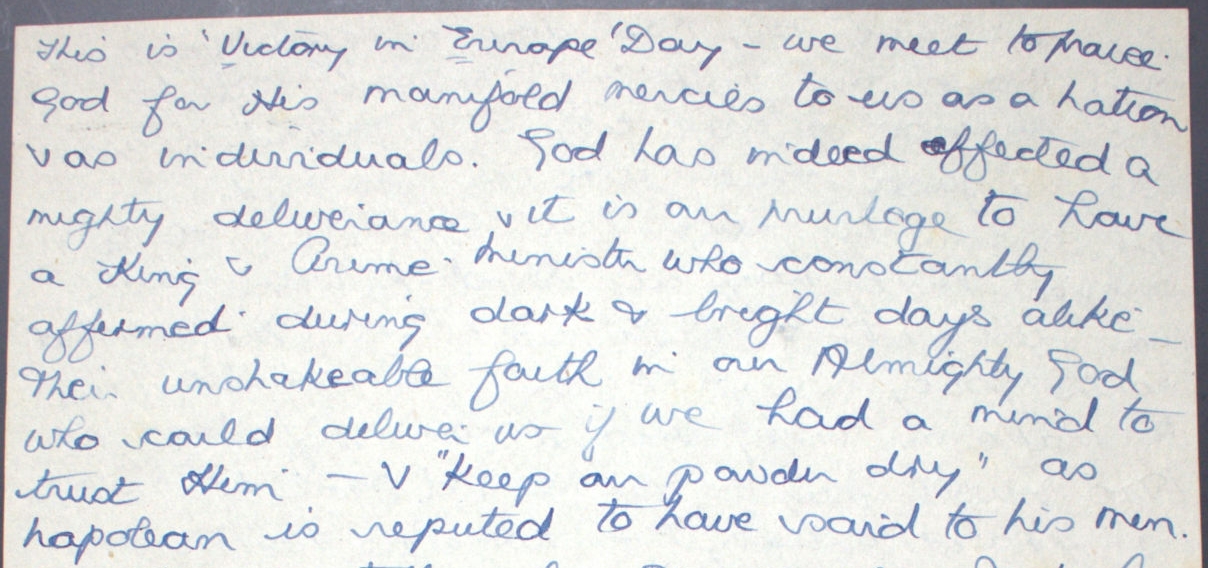 This is 'Victory in Europe' Day - we meet to praise
God for His manifold mercies to us as a nation
& as individuals. God has indeed effected a
mighty deliverance & it is our privilege to have
a King & Prime-Minister who constantly
affirmed during dark & bright days alike -
their unshakeable faith in our Almighty God
who could deliver us if we had a mind to
trust Him - & "Keep our powder dry" as
Napolean is reputed to have said to his men.